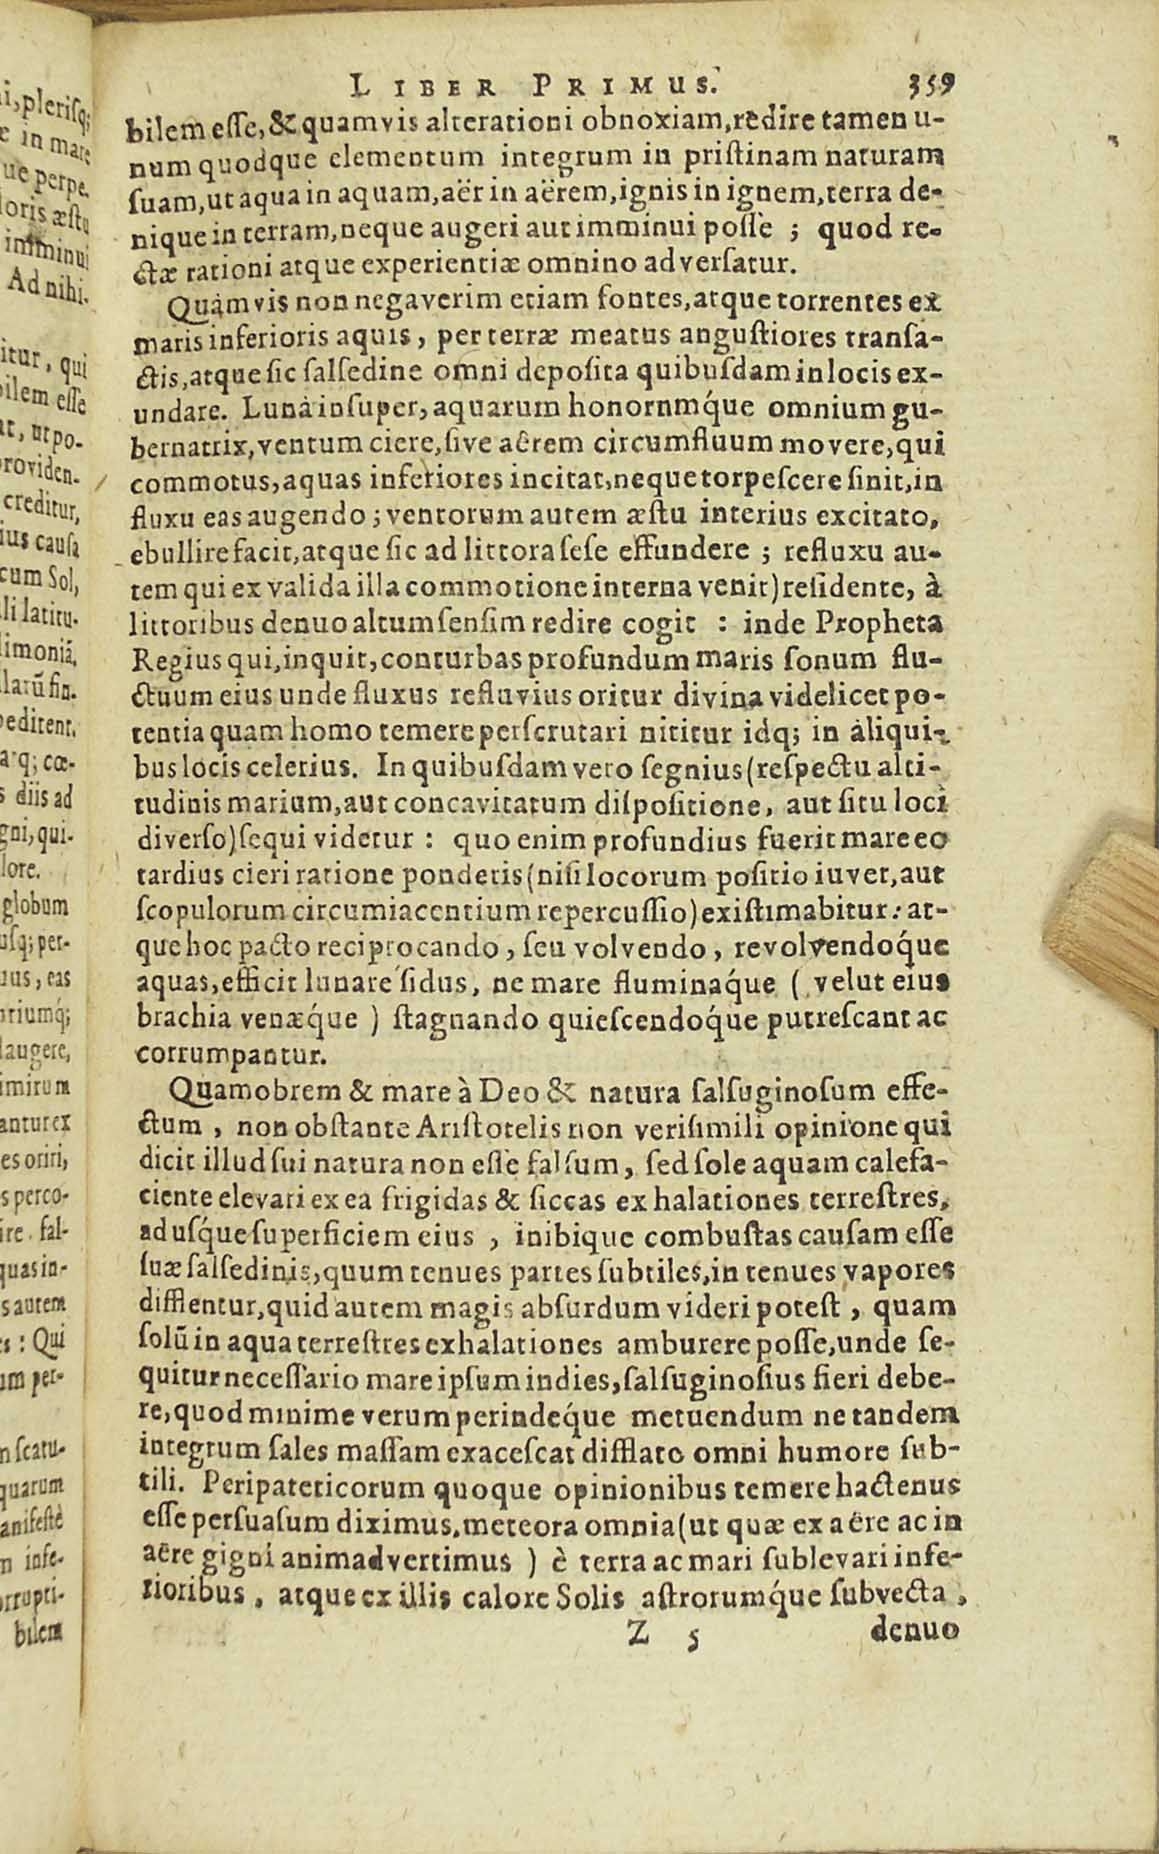 LIBER PRIMUS. 359
bilem eſſe, & quamvis alterationi obnoxiam, redire tamen u-
num quodque elementum integrum in priſtinam naturam
ſuam, ut aqua in aquam, aër in aërem, ignis in ignem, terra de-
nique in terram, neque augeri aut imminui poſſe ; quod re-
ctæ rationi atque experientiæ omnino adverſatur.
Quámvis non negaverim etiam fontes, atque torrentes ex
maris inferioris aquis, per terræ meatus anguſtiores transa-
ctis, atque ſic ſalſedine omni depoſita quibuſdam in locis ex-
undare. Luna inſuper, aquarum honornmq́ue omnium gu-
bernatrix, ventum ciere, ſive aêrem circumfluum movere, qui
commotus, aquas inferiores incitat, neque torpeſcere ſinit, in
fluxu eas augendo ; ventorum autem æſtu interius excitato,
ebullire facit, atque ſic ad littora ſeſe effundere ; refluxu au-
tem qui ex valida illa commotione interna venit) reſidente, à
littoribus denuo altum ſenſim redire cogit : inde Propheta
Regius qui, inquit, conturbas profundum maris ſonum flu-
ctuum eius unde fluxus refluvius oritur divina videlicet po-
tentia quam homo temere perſcrutari nititur idq; in aliqui-
bus locis celerius. In quibuſdam vero ſegnius (reſpectu alti-
tudinis marium, aut concavitatum diſpoſitione, aut ſitu loci
diverſo) ſequi videtur : quo enim profundius fuerit mare eo
tardius cieri ratione ponderis (niſi locorum poſitio iuvet, aut
ſcopulorum circumiacentium repercuſſio) exiſtimabitur : at-
que hoc pacto reciprocando, ſeu volvendo, revolvendoq́ue
aquas, efficit lunare ſidus, ne mare fluminaq́ue ( velut eius
brachia venæq́ue ) ſtagnando quieſcendoq́ue putreſcant ac
corrumpantur.
Quamobrem & mare à Deo & natura ſalſuginoſum effe-
ctum, non obſtante Ariſtotelis non veriſimili opinione qui
dicit illud ſui natura non eſſe ſalſum, ſed ſole aquam calefa-
ciente elevari ex ea frigidas & ſiccas exhalationes terreſtres,
ad uſq́ue ſuperficiem eius, inibique combuſtas cauſam eſſe
ſuæ ſalſedinis, quum tenues partes ſubtiles, in tenues vapores
difflentur, quid autem magis abſurdum videri poteſt, quam
ſolũ in aqua terreſtres exhalationes amburere poſſe, unde ſe-
quitur neceſſario mare ipſum indies, ſalſuginoſius fieri debe-
re, quod minime verum perindeq́ue metuendum ne tandem
integrum ſales maſſam exaceſcat difflato omni humore ſub-
tili. Peripateticorum quoque opinionibus temere hactenus
eſſe perſuaſum diximus, meteora omnia (ut quæ ex aëre ac in
aëre gigni animadvertimus ) è terra ac mari ſublevari infe-
rioribus, atque ex illis calore Solis aſtrorumq́ue ſubvecta,
Z 5 denuo